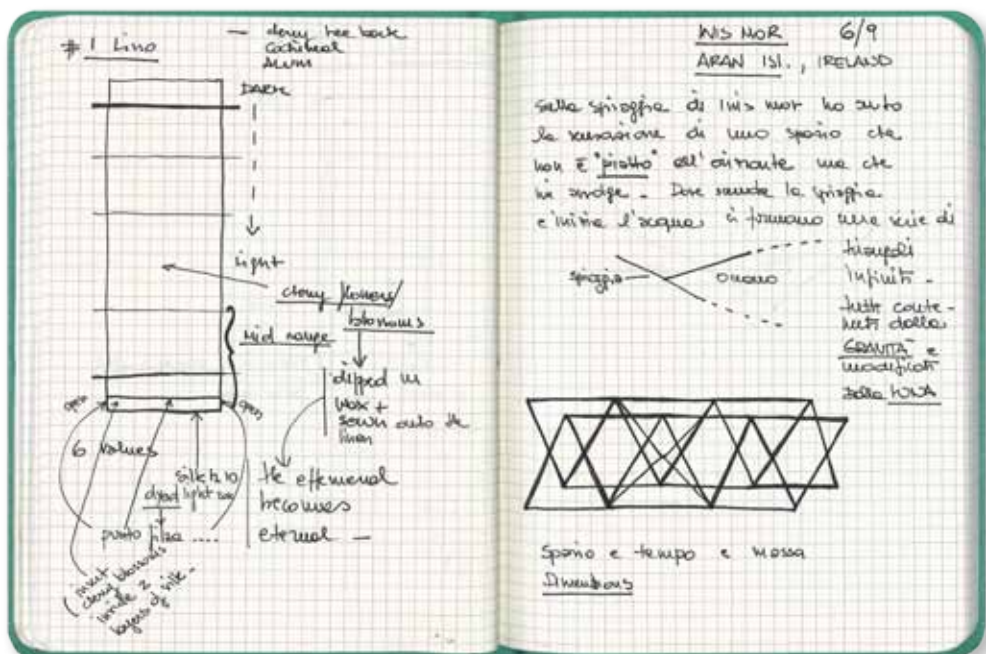 #1 Lino
— cherry tree bark
Cochineal
Alum
DARK
light
cherry flowers/
blossoms
mid range
dipped in
wax +
sewn onto the
linen
open
open
6 values
silk
light
dyed
punto filza ....
the effemeral
becomes
eternal —
(insert
cherry blossoms
inside 2
layers of silk —
INIS MOR 6/9
ARAN ISL., IRELAND
Sulla spiaggia di Inis mor ho avuto
la sensazione di uno spazio che
non è "piatto" all'orizzonte ma che
si svolge — Dove scende la spiaggia
e inizia l'acqua si formano una serie di
triangoli
infiniti —
tutti conte-
nuti dalla
GRAVITÀ e
modificati
dalla LUNA
spiaggia
oceano
Spazio e tempo e massa
Dimensions